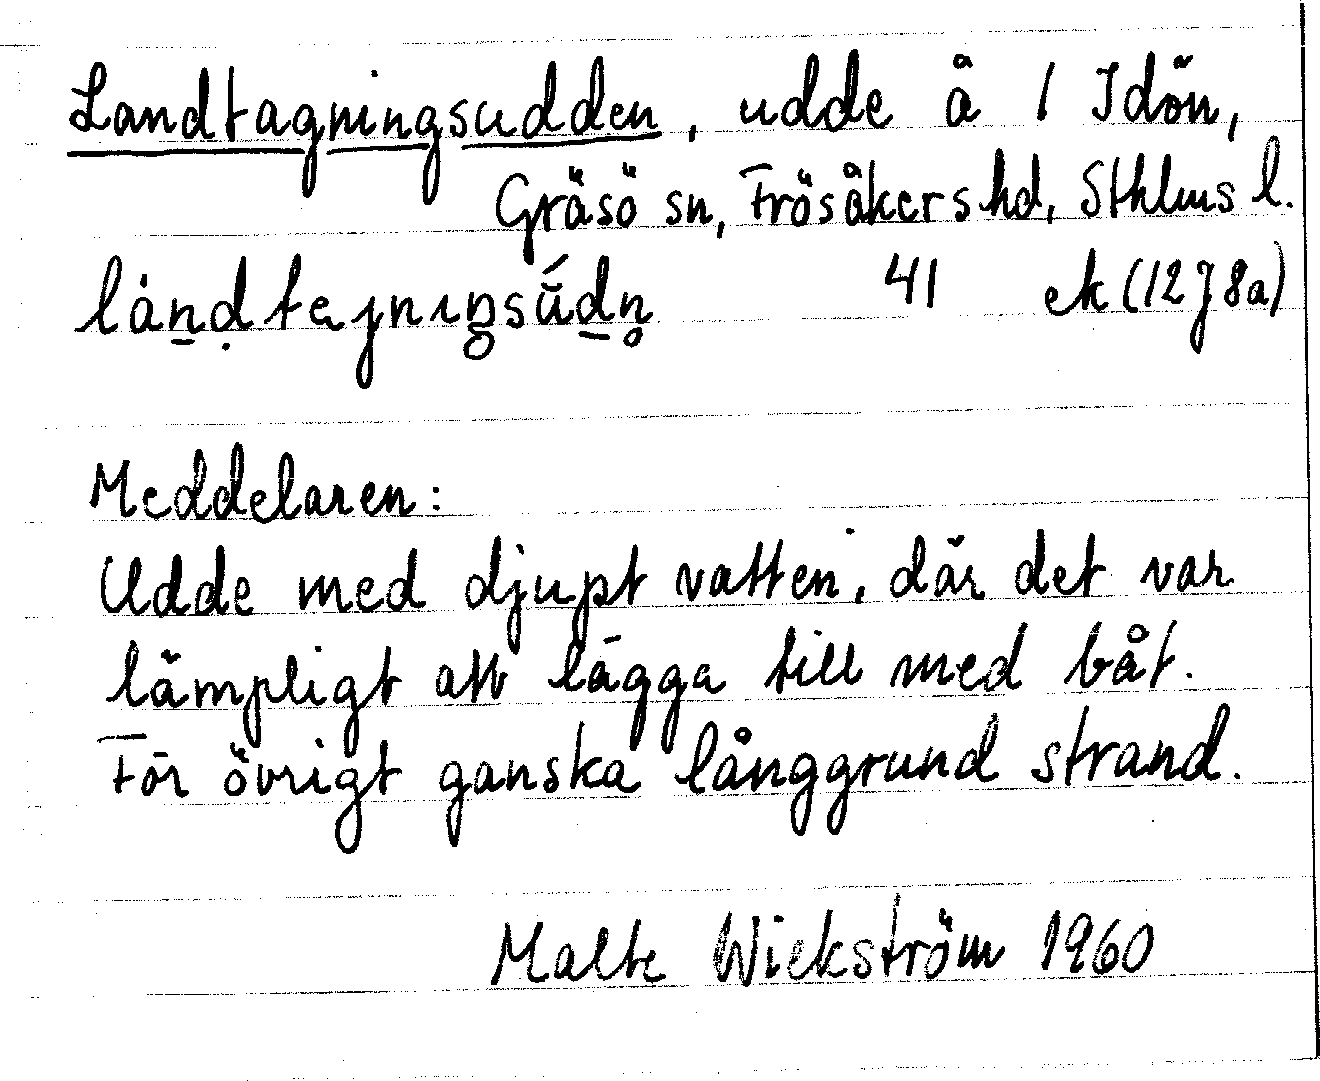 Landtagningsudden, udde å 1 Idön,
Gräsö sn, Frösåkers hd, Sthlms l.
41 ek (12 J 8a)
Meddelaren:
Udde med djupt vatten, där det var
lämpligt att lägga till med båt.
För övrigt ganska långgrund strand.
Malte Wickström 1960